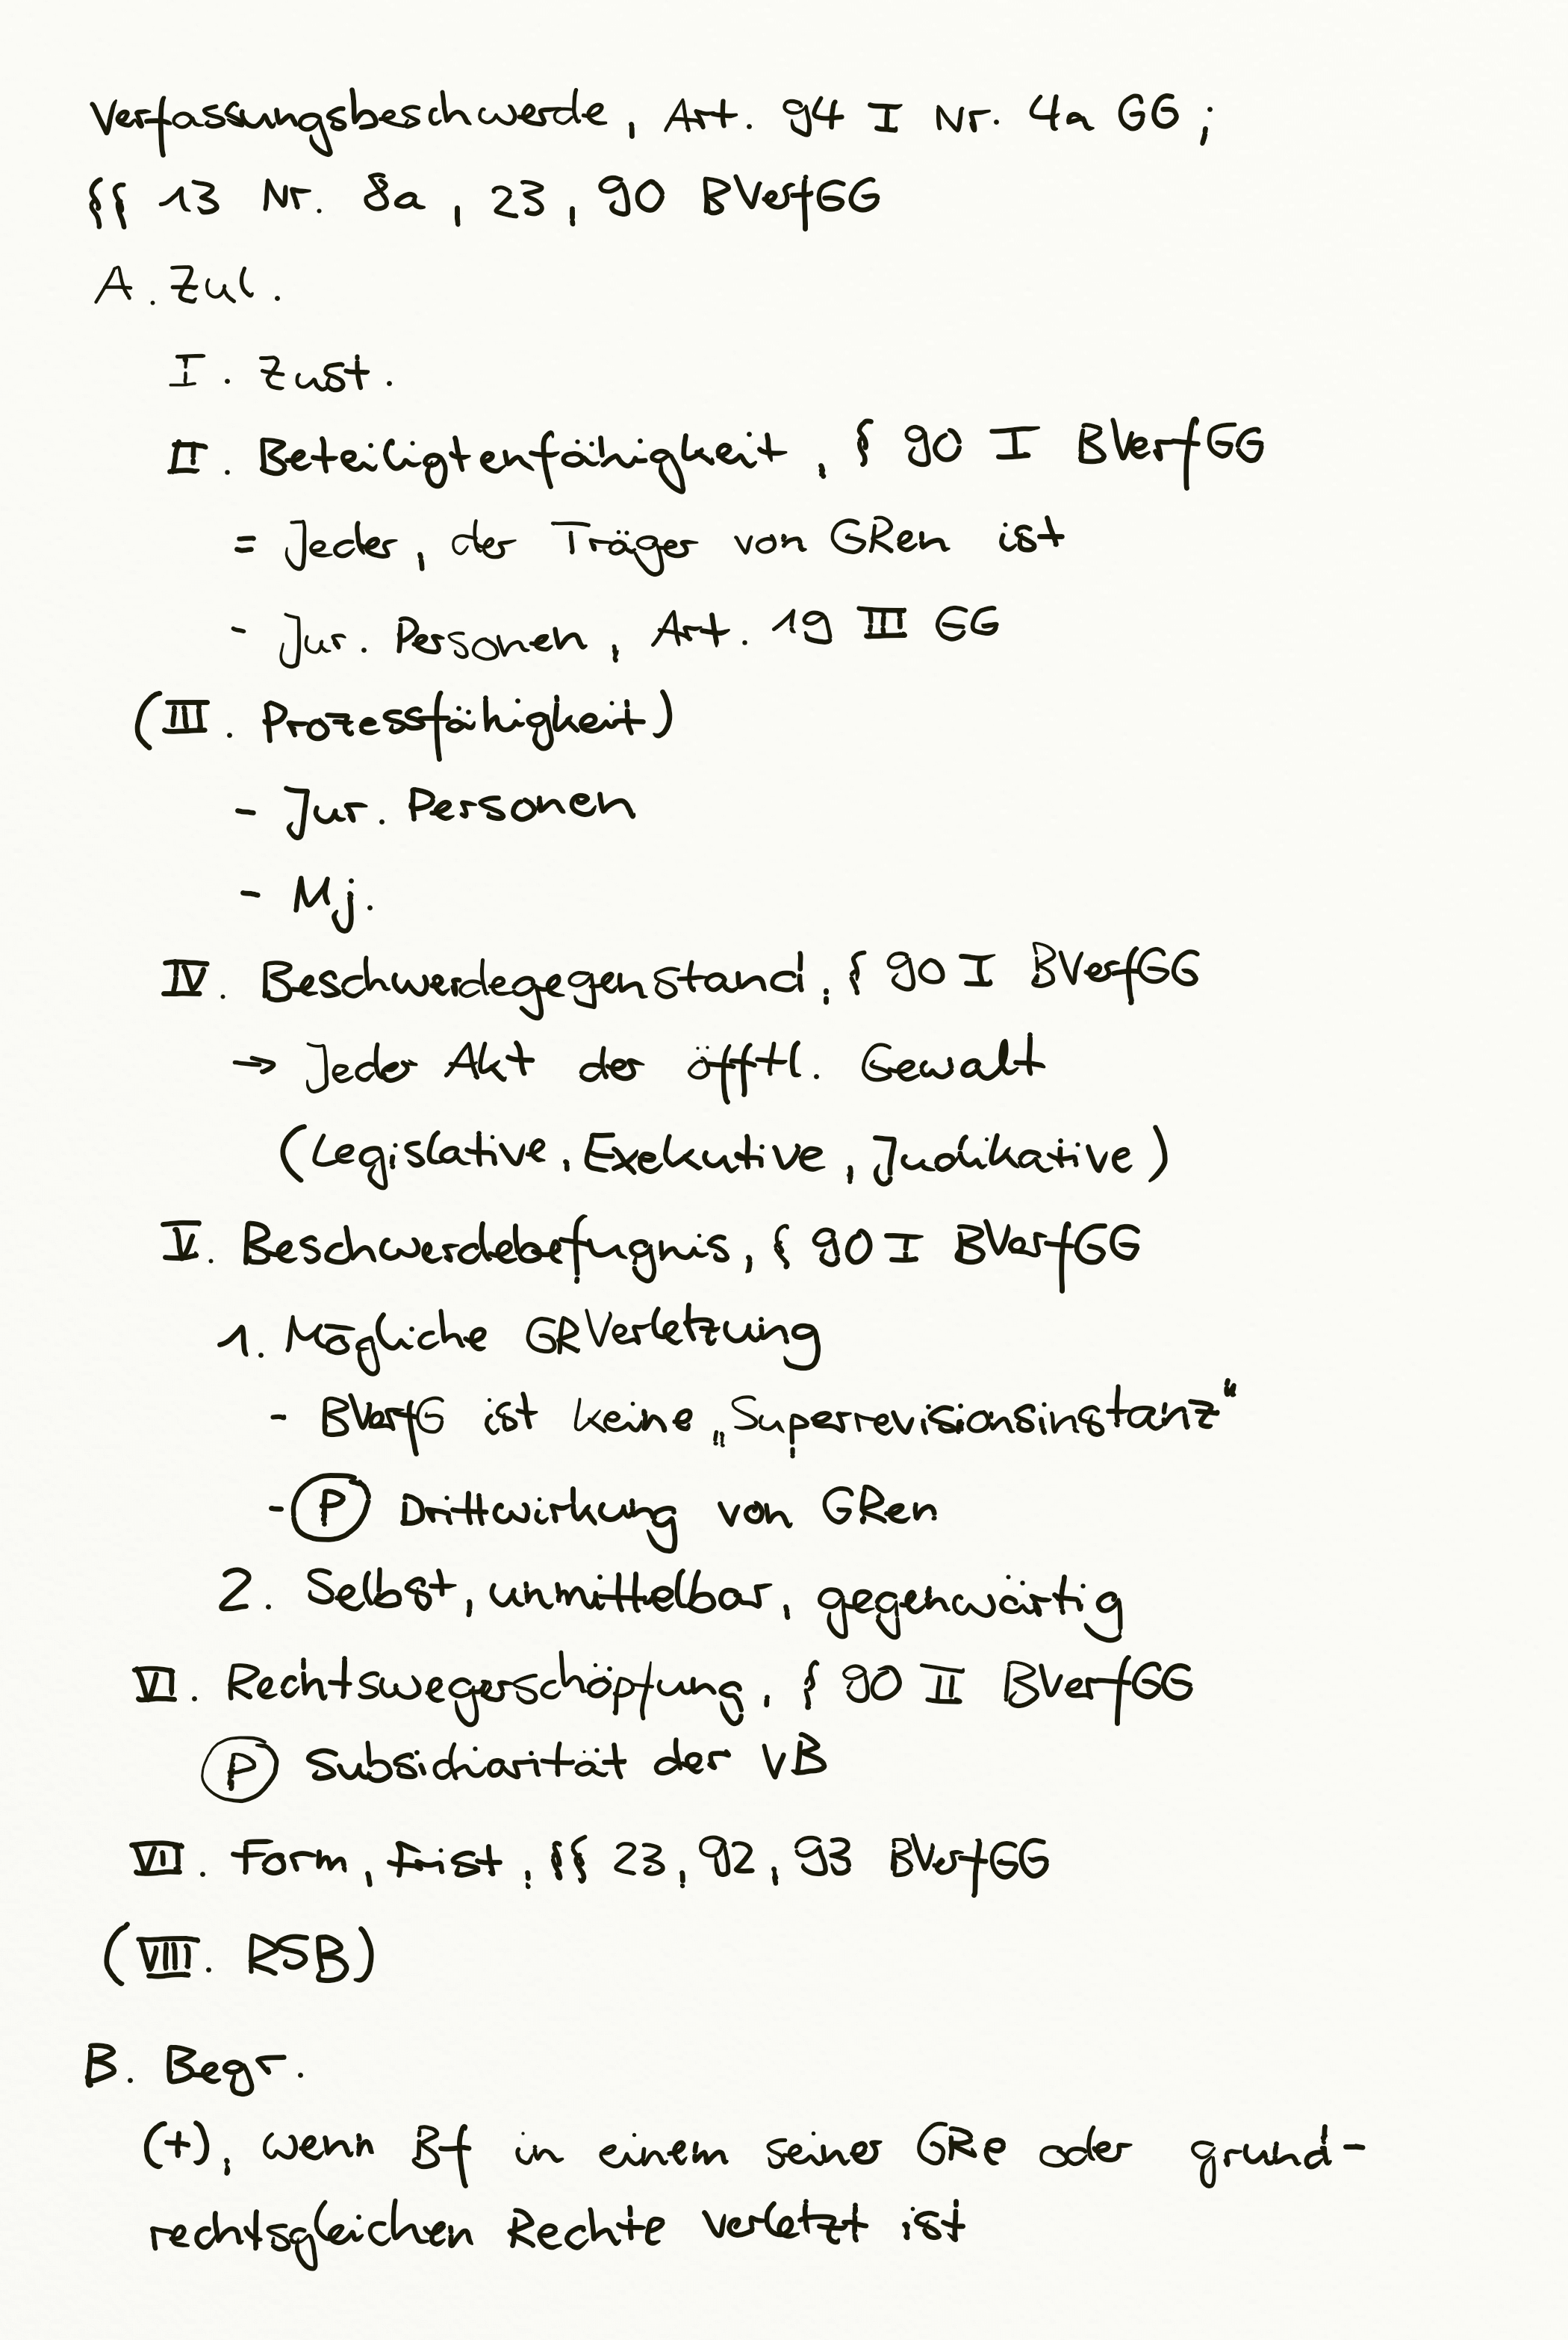 Verfassungsbeschwerde, Art. 94 I Nr. 4a GG;
§§ 13 Nr. 8a, 23, 90 BVerfGG
A. Zul.
I. Zust.
II. Beteiligtenfähigkeit, § 90 I BVerfGG
= Jeder, der Träger von GRen ist
- Jur. Personen, Art. 19 III GG
(III. Prozessfähigkeit)
- Jur. Personen
- Mj.
IV. Beschwerdegegenstand, § 90 I BVerfGG
→ Jeder Akt der öfftl. Gewalt
(Legislative, Exekutive, Judikative)
V. Beschwerdebefugnis, § 90 I BVerfGG
1. Mögliche GRVerletzung
- BVerfG ist keine „Superrevisionsinstanz“
- (P) Drittwirkung von GRen
2. Selbst, unmittelbar, gegenwärtig
VI. Rechtswegerschöpfung, § 90 II BVerfGG
(P) Subsidiarität der VB
VII. Form, Frist, §§ 23, 92, 93 BVerfGG
(VIII. RSB)
B. Begr.
(+), wenn Bf in einem seiner GRe oder grund-
rechtsgleichen Rechte verletzt ist